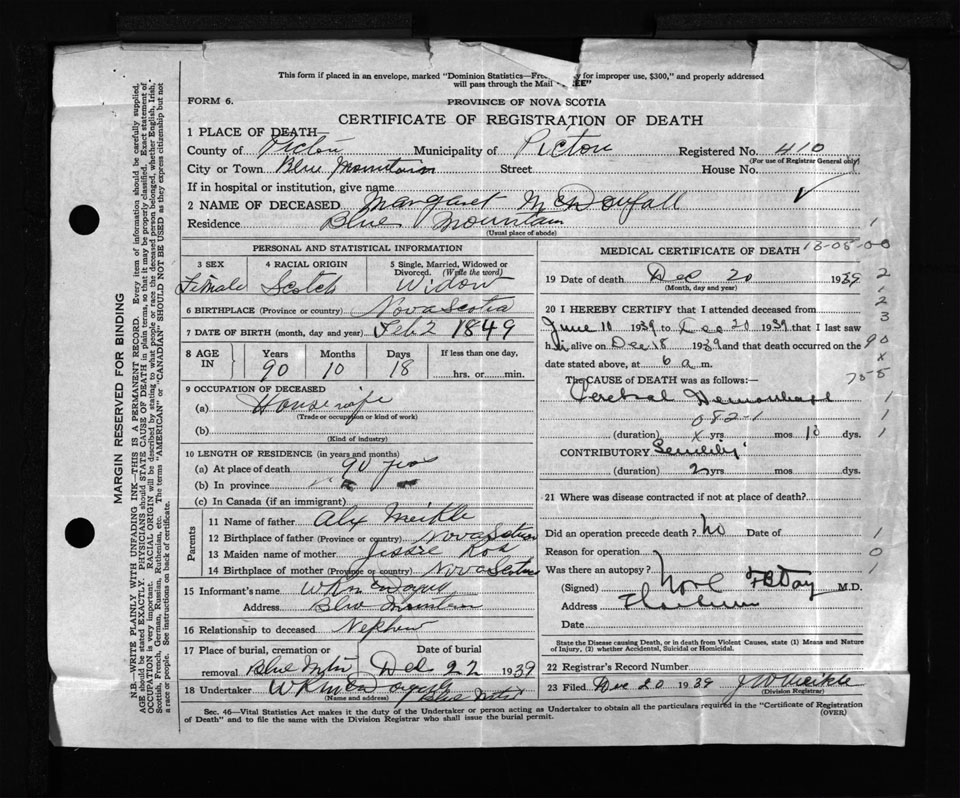 This form if placed in an envelope, marked "Dominion Statistics—Free for improper use, $300," and properly addressed
will pass through the Mail
FORM 6.
PROVINCE OF NOVA SCOTIA
CERTIFICATE OF REGISTRATION OF DEATH
1 PLACE OF DEATH—
County of Pictou Municipality of Pictou Registered No. 410
(For use of Registrar General only)
City or Town Blue Mountain Street House No.
If in hospital or institution, give name
2 NAME OF DECEASED Margaret McDougall
Residence Blue Mountain
(Usual place of abode)
PERSONAL AND STATISTICAL INFORMATION
3 SEX 4 RACIAL ORIGIN 5 Single, Married, Widowed or
Divorced. (Write the word)
Female Scotch Widow
6 BIRTHPLACE (Province or country) Nova Scotia
7 DATE OF BIRTH (month, day and year) Feb 2 1849
8 AGE IN Years Months Days If less than one day,
90 10 18 hrs. or min.
9 OCCUPATION OF DECEASED
(a) Housewife
(Trade or occupation or kind of work)
(b)
(Kind of industry)
10 LENGTH OF RESIDENCE (in years and months)
(a) At place of death 90 yrs
(b) In province
(c) In Canada (if an immigrant)
Parents
11 Name of father Alex Meikle
12 Birthplace of father (Province or country) Nova Scotia
13 Maiden name of mother Jessie Ross
14 Birthplace of mother (Province or country) Nova Scotia
15 Informant's name W R McDougall
Address Blue Mountain
16 Relationship to deceased Nephew
17 Place of burial, cremation or Date of burial
removal Blue Mtn Dec 22 1939
18 Undertaker W R McDougall
(Name and address) Blue Mtn
MEDICAL CERTIFICATE OF DEATH 13-05-00
19 Date of death Dec 20 1939
(Month, day and year)
20 I HEREBY CERTIFY that I attended deceased from
June 10 1939 to Dec 20 1939 that I last saw
h alive on Dec 18 1939 and that death occurred on the
date stated above, at 6 a m.
The CAUSE OF DEATH was as follows:—
Cerebral Hemorrhage
082-1
(duration) x yrs mos 10 dys.
CONTRIBUTORY Senility
(duration) 2 yrs mos. dys.
21 Where was disease contracted if not at place of death?
Did an operation precede death? No Date of
Reason for operation
Was there an autopsy? None
(Signed) Day M.D.
Address
Date
State the Disease causing Death, or in death from Violent Causes, state (1) Means and Nature
of Injury, (2) whether Accidental, Suicidal or Homicidal.
22 Registrar's Record Number
23 Filed Dec 20 1939 J W Meikle
(Division Registrar)
1
2
1
2
3
90
x
75-5
1
1
1
1
0
1
Sec. 46—Vital Statistics Act makes it the duty of the Undertaker or person acting as Undertaker to obtain all the particulars required in the "Certificate of Registration
of Death" and to file the same with the Division Registrar who shall issue the burial permit. (OVER)
MARGIN RESERVED FOR BINDING
N.B.—WRITE PLAINLY WITH UNFADING INK—THIS IS A PERMANENT RECORD. Every item of information should be carefully supplied.
AGE should be stated EXACTLY. PHYSICIANS should STATE CAUSE OF DEATH in plain terms, so that it may be properly classified. Exact statement of
OCCUPATION is very important. RACIAL ORIGIN will be described by stating to what people or race the deceased person belonged, whether English, Irish,
Scottish, French, German, Russian, Ruthenian, etc. The terms "AMERICAN" or "CANADIAN" SHOULD NOT BE USED as they express citizenship but not
a race or people. See instructions on back of certificate.